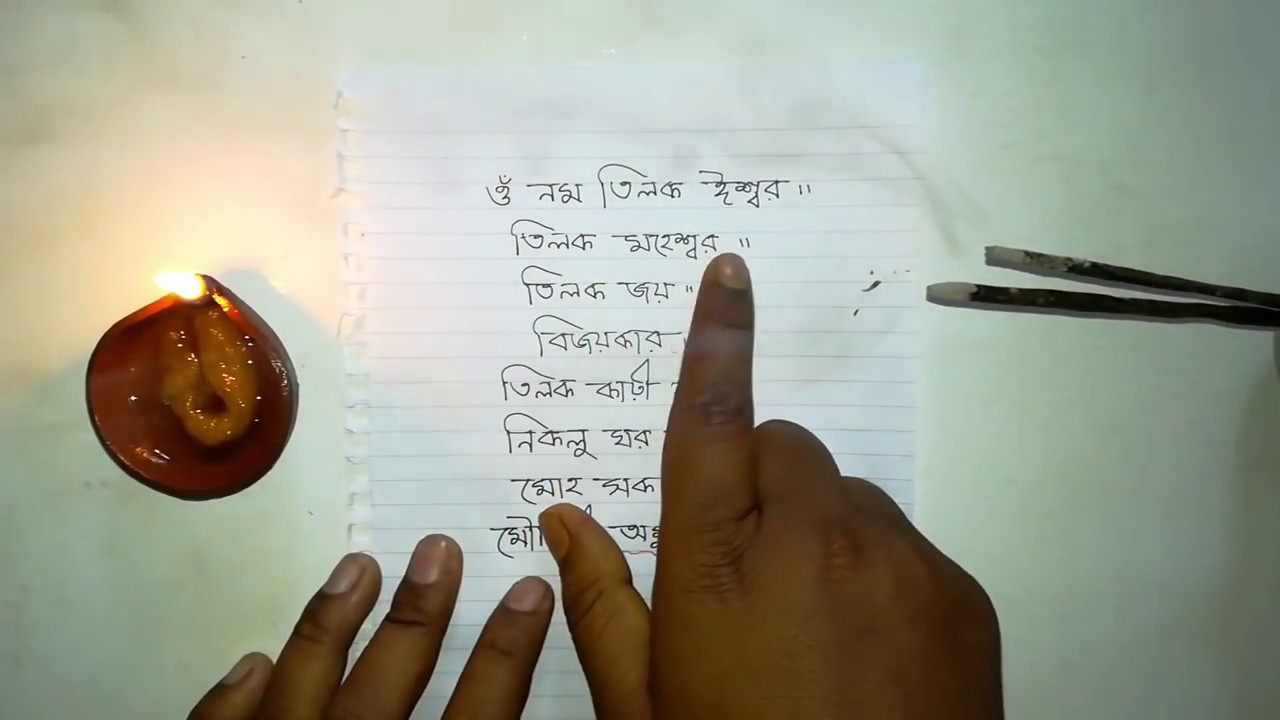 ওঁ নম তিলক ঈশ্বর ॥
তিলক মহেশ্বর ॥
তিলক জয় ॥
বিজয়কার
তিলক কাটী
নিকলু ঘর
মোহ